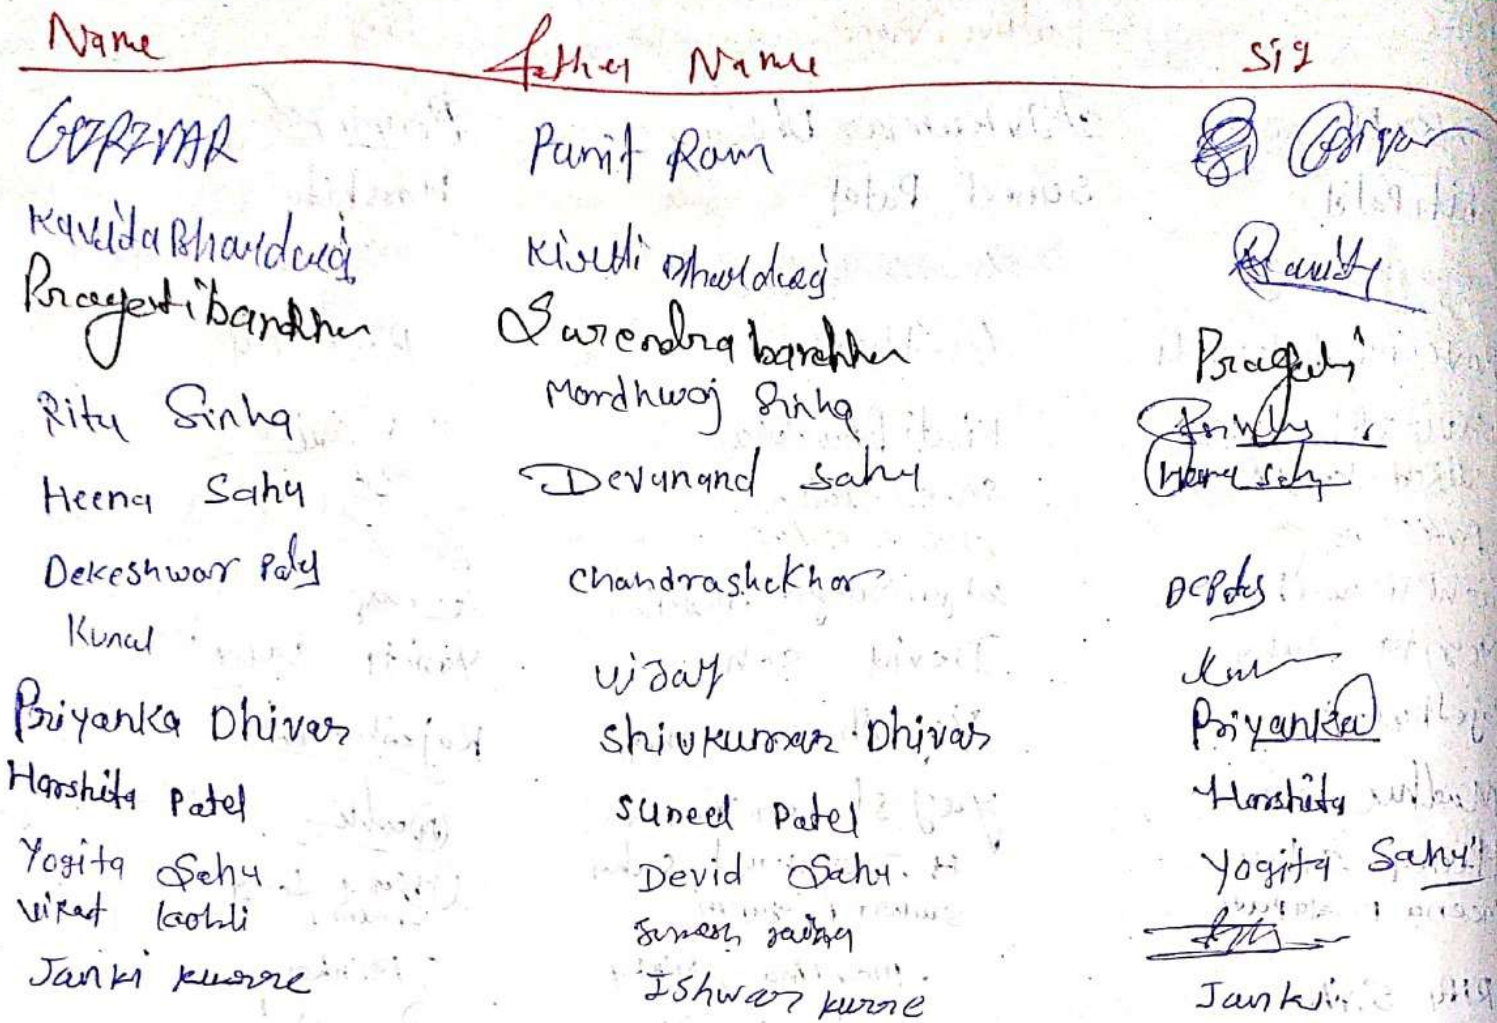 Name Father Name Sig
GIRIVAR Punit Ram
Kavita Bhardwaj Bhardwaj
Pragati bandhu Surendra bandhu Pragati
Ritu Sinha Mordhwaj Sinha
Heena Sahu Devanand Sahu Heena Sahu
Dekeshwar Chandrashekhar
Kunal Vijay
Priyanka Dhivar Shivkumar Dhivar Priyanka
Harshita Patel Suneel Patel Harshita
Yogita Sahu Devid Sahu Yogita Sahu
Virat kohli
Janki kurre Ishwar kurre Janki